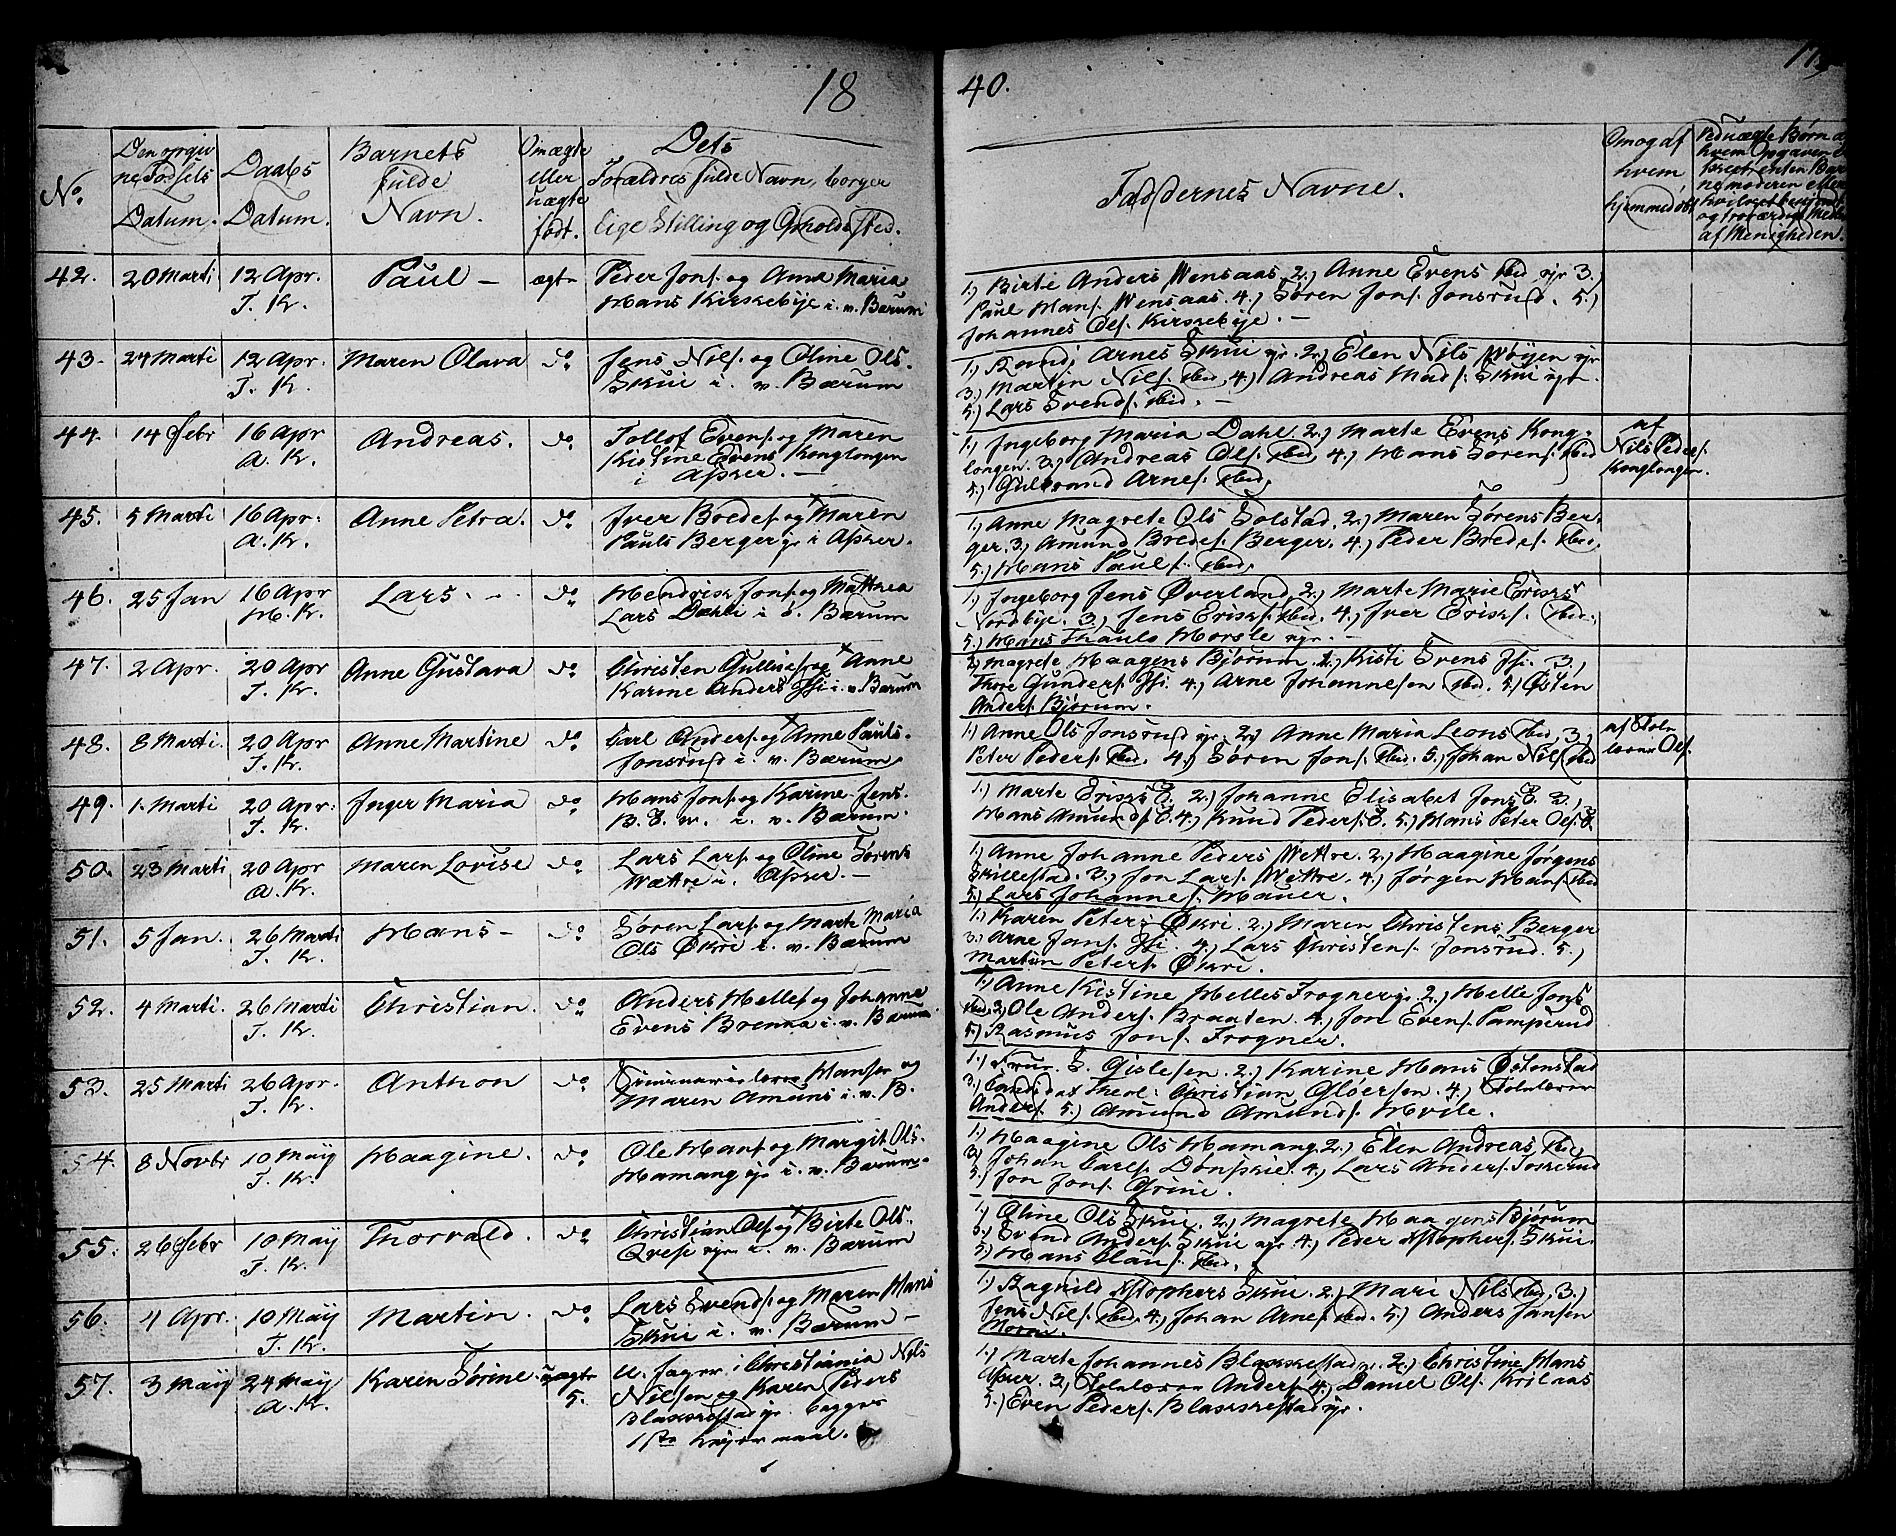 18
40.
No.
Den opgiv
ne Fødsels
Datum.
Daabs
Datum.
Barnets
fulde
Navn.
Om ægte
eller
uægte
født.
Dets
Forældres fulde Navn, borger
lige Stilling og Opholdssted.
Faddernes Navne.
Om og af
hvem
hjemmedøbt
42. 20 Marti 12 Apr. Paul - ægte Peder Jons. og Anne Maria
T. K. Hans Kirkebye i v. Bærum
1.) Birte Anders Wensaas 2.) Anne Evens ibid. eje 3.)
Paul Hans. Wensaas. 4.) Søren Jons. Jonsrud. 5.)
Johannes Ols. Kirkebye. -
43. 24 Marti 12 Apr. Maren Olava do Jens Nils. og Oline Ols.
T. K. Skui i v. Bærum
1.) Randi Arnes Skui eje. 2.) Elen Nils Wøyen eje
3.) Martin Nils. ibid. 4.) Andreas Mads. Skui eje.
5.) Lars Svends. ibid. -
44. 14 Febr 16 Apr Andreas. do Tollof Evens. og Maren
A. K. Kistine Evens Konglongen
i Asker. -
1.) Ingeborg Maria Dahl 2.) Marte Evens Kong-
longen. 3.) Andreas Ols. ibid. 4.) Hans Sørens. ibid
5.) Gulbrand Arnes. ibid.
af
Nils Peders.
Konglongen.
45. 5 Marti 16 Apr. Anne Petra. do Iver Bredes. og Maren
A. K. Pauls Berger eje i Asker.
1.) Anne Magrete Ols Solstad. 2.) Maren Sørens Ber-
ger. 3.) Amund Bredes. Berger. 4.) Peder Bredes. ibid.
5.) Hans Pauls. ibid.
46. 25 Jan 16 Apr Lars. - do Hendrik Jons. og Mathea
H. K. Lars Dæhli i ø. Bærum
1.) Ingeborg Jens Øverland 2.) Marte Marie Eriks
Nordbye. 3.) Jens Eriks. ibid. 4.) Iver Eriks. ibid.
5.) Hans Thaulo Horsle eje. -
47. 2 Apr. 20 Apr Anne Gustava do Christen Gullics. og Anne
T. K. Karine Anders Isi i v. Bærum
1.) Magrete Haagens Bjørum. 2.) Kisti Svens Isi. 3.)
Thore Gunders. Isi. 4.) Arne Johannesen ibid. 5.) Østen
Anders. Bjørum.
48. 8 Marti. 20 Apr Anne Martine do Carl Anders. og Anne Pauls.
T. K. Jonsrud i v. Bærum
1.) Anne Ols Jonsrud eje. 2.) Anne Maria Leons ibid. 3.)
Peter Peders. ibid. 4.) Søren Jons. ibid. 5.) Johan Nils. ibid
af Skole
lærer Ols.
49. 1. Marti 20 Apr. Inger Maria do Hans Jons. og Karine Jens.
T. K. B. E. v. i v. Bærum.
1.) Marte Eriks E. 2.) Johanne Elisabet Jons E. 3.)
Hans Amunds. E. 4.) Knud Peders. E. 5.) Hans Peter Ols. E.
50. 23 Marti 20 Apr Maren Lovise do Lars Lars. og Oline Sørens
A. K. Wættre i Asker. -
1.) Anne Johanne Peders Wettre. 2.) Haagine Jørgens
Skillestad. 3.) Jon Lars. Wettre. 4.) Jørgen Hans. ibid
5.) Lars Johannes. Hauer.
51. 5 Jan. 26 Marti Hans - do Søren Lars. og Marte Maria
T. K. Ols Økri i v. Bærum
1.) Karen Peters Økri. 2.) Maren Christens Berger
3.) Arne Jans. Isi. 4.) Lars Christens. Jonsrud. 5.)
Martin Peters. Økri.
52. 4 Marti. 26 Marti Christian. do Anders Helles. og Johanne
T. K. Evens Brenna i v. Bærum
1.) Anne Kistine Helles Frogner eje. 2.) Helle Jons
ibid. 3.) Ole Anders. Braaten. 4.) Jon Evens. Pamperud
5.) Rasmus Jons. Frogner.
53. 25 Marti 26 Apr. Anthon do Seminarielærer Hansen og
T. K. Maren Amunds i v. B.
1.) Frue S. Gislesen. 2.) Karine Hans Østenstad
3.) Candidat Theol. Christian Gløersen. 4.) Skolelærer
Anders. 5.) Amund Amunds. Hvile.
54. 8 Novbr 10 Maij Haagine. do Ole Hans. og Margit Ols.
T. K. Hamang eje i v. Bærum.
1.) Haagine Ols Hamang. 2.) Elen Andreas ibid.
3.) Johan Carls. Dønskie. 4.) Lars Anders. Tokerud
5.) Jon Jons. Grini.
55. 26 Febr 10 Maij Thorvald. do Christian Ols. og Birte Ols.
T. K. Qvese eje i v. Bærum
1.) Oline Ols Skui. 2.) Magrete Haagens Bjørum
3.) Svend Anders. Skui eje 4.) Peder Xstophers. Skui.
5.) Hans Claus. ibid.
56. 4 Apr. 10 Maij Martin. do Lars Svends. og Maren Hans
T. K. Skui i v. Bærum -
1.) Ragnild Xstophers Skui. 2.) Mari Nils ibid. 3.)
Jens Nils. ibid. 4.) Johan Arnes. ibid. 5.) Anders Jansen
57. 3 Maij 24 Maij Karen Sørine uægte U. Jæger i Christiania Nils
A. K. 5. Nilsen og Karen Peders
Blakkestad eje. begges
1ste Leiermaal.
1.) Marte Johannes Blakkestad eje. 2.) Christine Hans
Asker. 3.) Skolelærer Anders. 4.) Daniel Ols.
5.) Even Peders. Blakkestad eje.